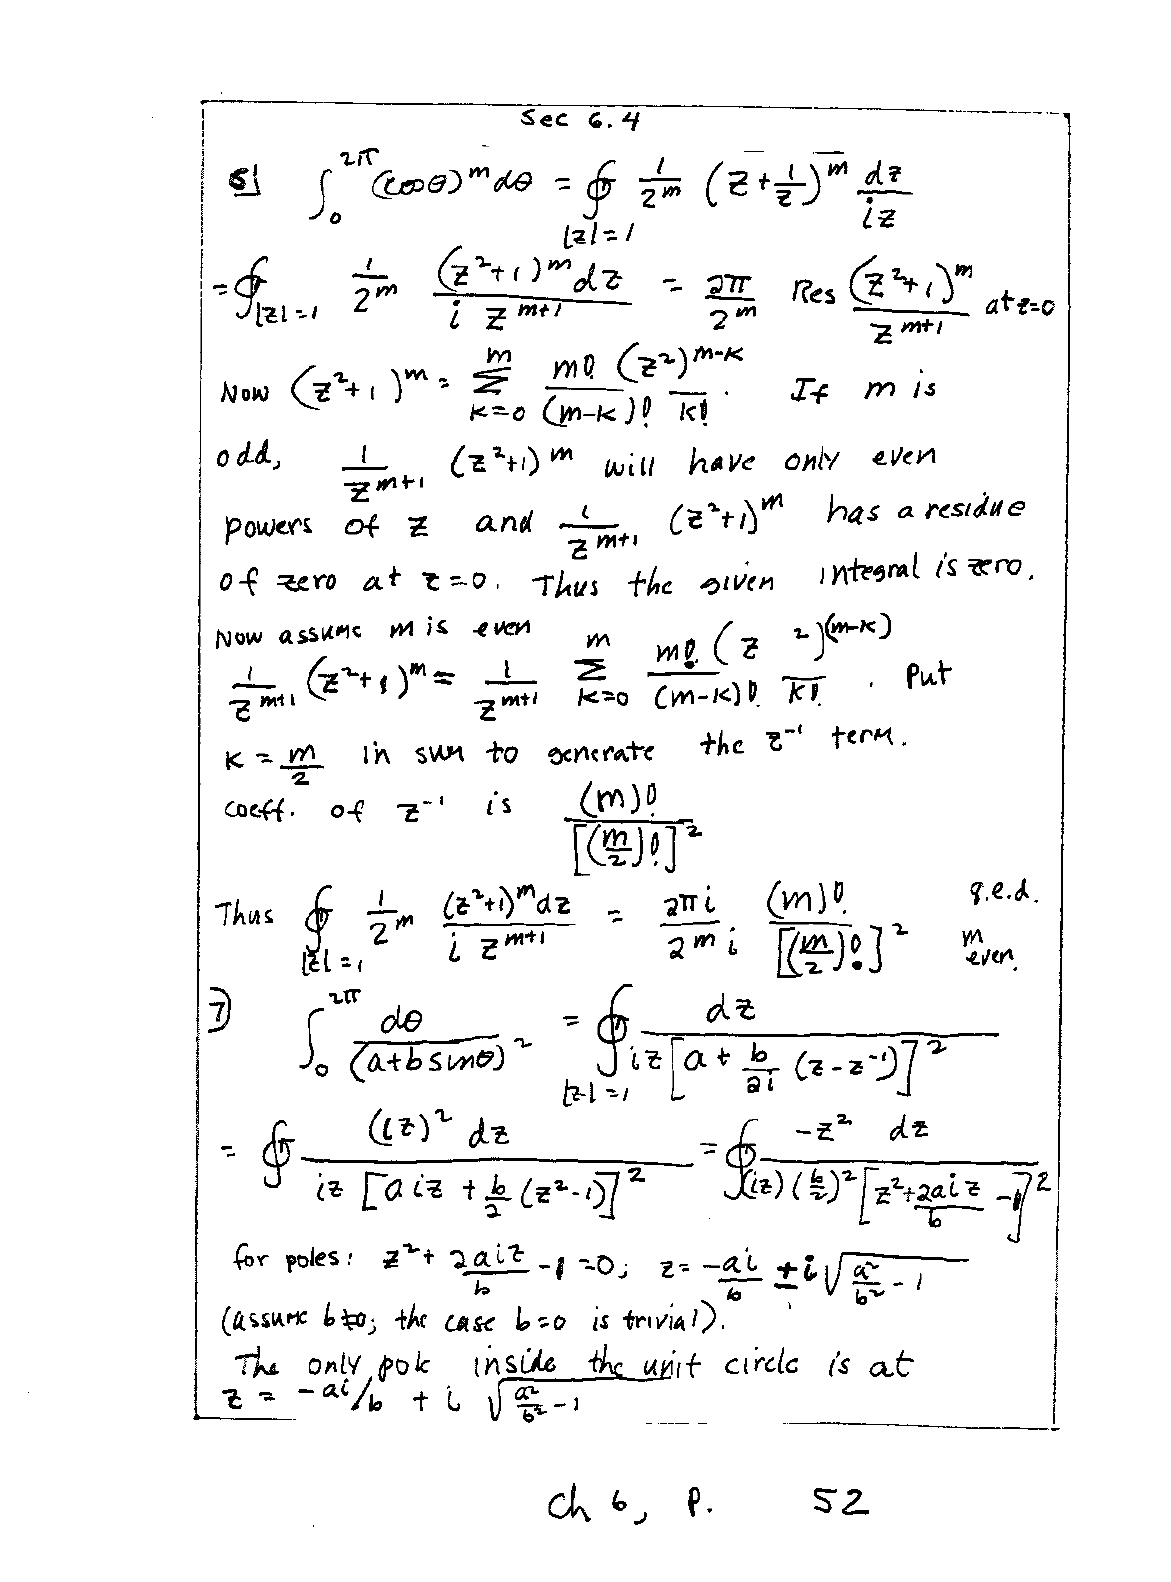 Sec 6.4
5] ∫₀^{2π} (cosθ)^m dθ = ∮_{|z|=1} 1/2^m (z + 1/z)^m dz/(iz)
= ∮_{|z|=1} 1/2^m (z²+1)^m dz / (i z^{m+1}) = 2π/2^m Res (z²+1)^m / z^{m+1} at z=0
Now (z²+1)^m = Σ_{k=0}^{m} m! (z²)^{m-k} / ((m-k)! k!). If m is
odd, 1/z^{m+1} (z²+1)^m will have only even
powers of z and 1/z^{m+1} (z²+1)^m has a residue
of zero at z=0. Thus the given integral is zero.
Now assume m is even
1/z^{m+1} (z²+1)^m = 1/z^{m+1} Σ_{k=0}^{m} m! (z²)^{(m-k)} / ((m-k)! k!). Put
k = m/2 in sum to generate the z^{-1} term.
coeff. of z^{-1} is (m)! / [(m/2)!]²
Thus ∮_{|z|=1} 1/2^m (z²+1)^m dz / (i z^{m+1}) = 2πi/(2^m i) (m)! / [(m/2)!]² q.e.d. m even.
7] ∫₀^{2π} dθ / (a+b sinθ)² = ∮_{|z|=1} dz / (iz [a + b/2i (z - z^{-1})]²)
= ∮ (iz)² dz / (iz [aiz + b/2 (z²-1)]²) = ∮ -z² dz / ((iz) (b/2)² [z² + 2aiz/b - 1]²)
for poles: z² + 2aiz/b - 1 = 0; z = -ai/b ± i √(a²/b² - 1)
(assume b≠0; the case b=0 is trivial).
The only pole inside the unit circle is at
z = -ai/b + i √(a²/b² - 1)
Ch 6, P. 52